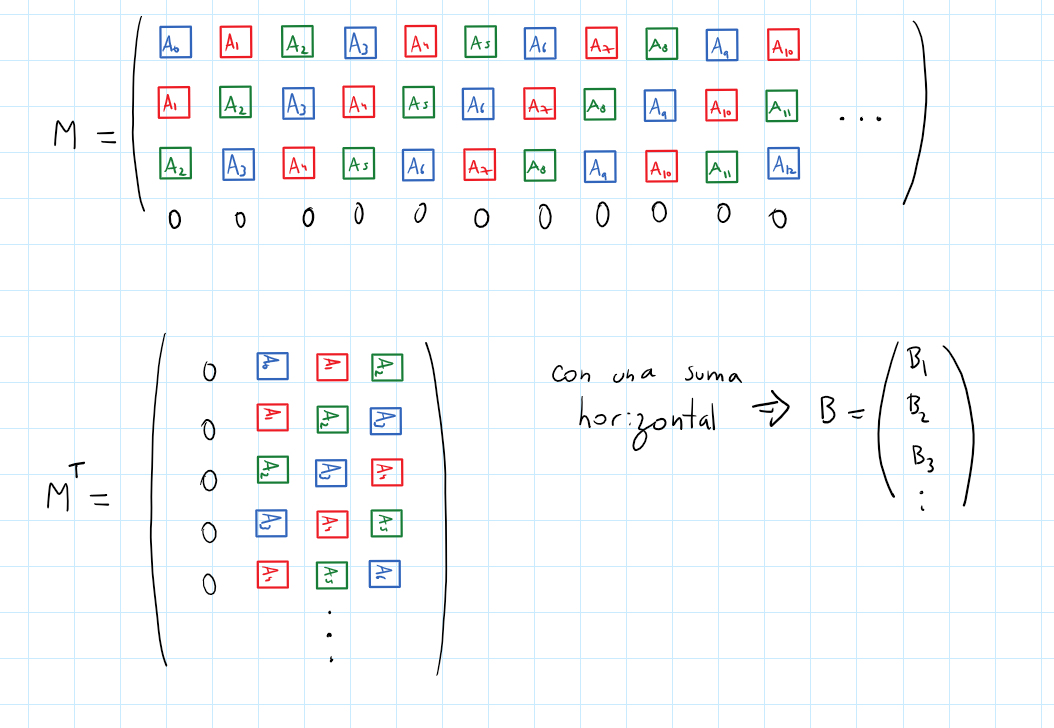 A0 A1 A2 A3 A4 A5 A6 A7 A8 A9 A10
M = A1 A2 A3 A4 A5 A6 A7 A8 A9 A10 A11 ...
A2 A3 A4 A5 A6 A7 A8 A9 A10 A11 A12
0 0 0 0 0 0 0 0 0 0 0
0 A0 A1 A2
0 A1 A2 A3
M^T = 0 A2 A3 A4
0 A3 A4 A5
0 A4 A5 A6
⋮
con una suma
horizontal => B =
B1
B2
B3
⋮